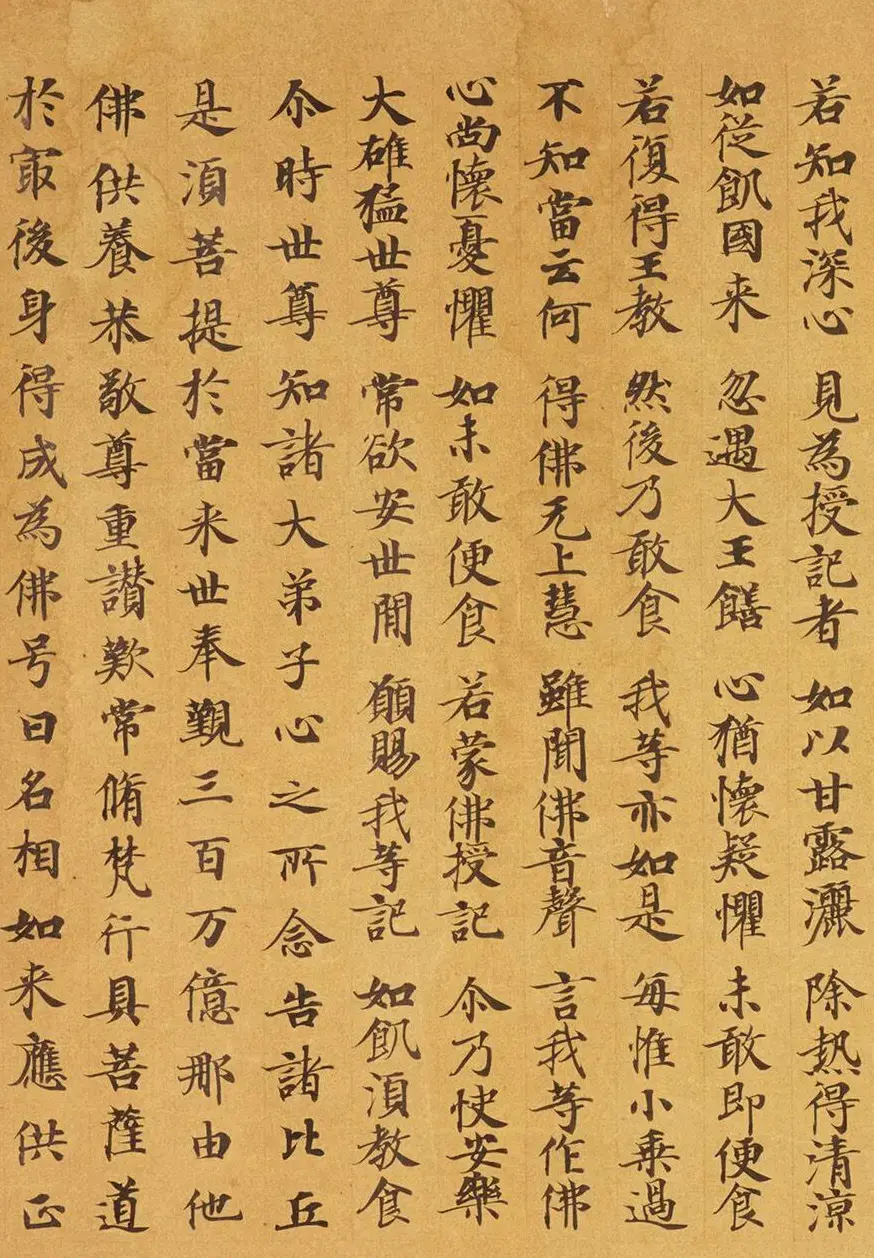 若知我深心 見為授記者 如以甘露灑 除熱得清涼
如從飢國来 忽遇大王饍 心猶懷疑懼 未敢即便食
若復得王教 然後乃敢食 我等亦如是 每惟小乗過
不知當云何 得佛无上慧 雖聞佛音聲 言我等作佛
心尚懷憂懼 如未敢便食 若蒙佛授記 尒乃快安樂
大雄猛世尊 常欲安世間 願賜我等記 如飢須教食
尒時世尊知諸大弟子心之所念告諸比丘
是須菩提於當来世奉覲三百万億那由他
佛供養恭敬尊重讃歎常脩梵行具菩薩道
於冣後身得成為佛号曰名相如来應供正